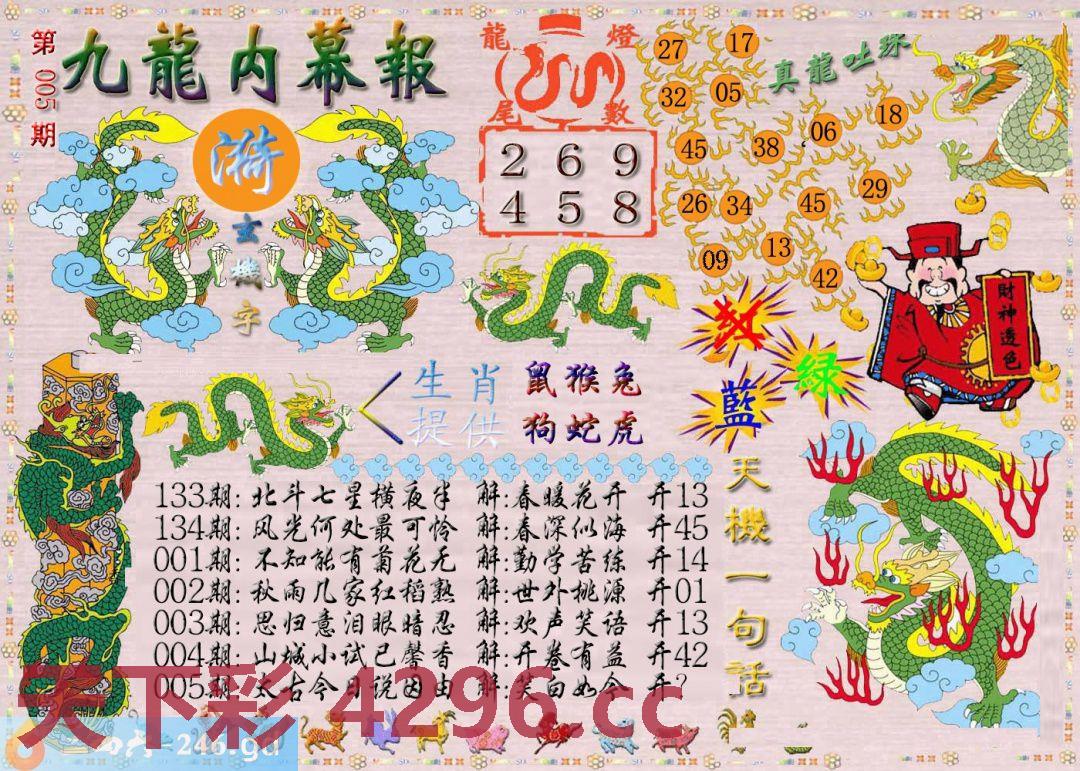 第005期
九龍内幕報
龍燈
尾數
2 6 9
4 5 8
真龍吐珠
27 17
32 05
45 38 06 18
26 34 45 29
09 13 42
漪
玄機字
財神透色
紅
綠
藍
生肖提供
鼠猴兔
狗蛇虎
天機一句話
133期:北斗七星横夜半 解:春暖花开 开13
134期:风光何处最可怜 解:春深似海 开45
001期:不知能有菊花无 解:勤学苦练 开14
002期:秋雨几家红稻熟 解:世外桃源 开01
003期:思归意泪眼暗忍 解:欢声笑语 开13
004期:山城小试已馨香 解:开卷有益 开42
005期:太古今日说因由 解:笑面如今 开?
天下彩 4296.cc
246.gd